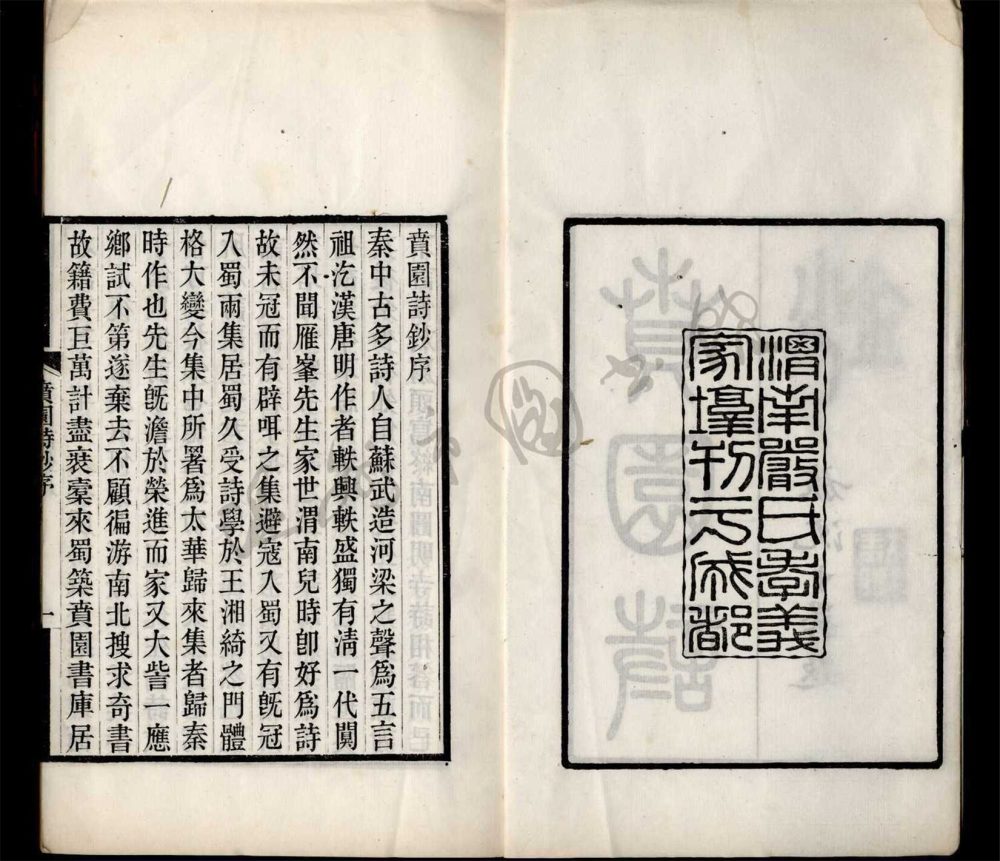 渭南嚴氏孝義
家塾刊于成都
賁園詩鈔序
秦中古多詩人自蘇武造河梁之聲爲五言
祖汔漢唐明作者軼興軼盛獨有清一代闃
然不聞雁峯先生家世渭南兒時卽好爲詩
故未冠而有辟咡之集避寇入蜀又有旣冠
入蜀兩集居蜀久受詩學於王湘綺之門體
格大變今集中所署爲太華歸來集者歸秦
時作也先生旣澹於榮進而家又大訾一應
鄉試不第遂棄去不顧徧游南北搜求奇書
故籍費巨萬計盡裒槖來蜀築賁園書庫居
賁園詩鈔序
一